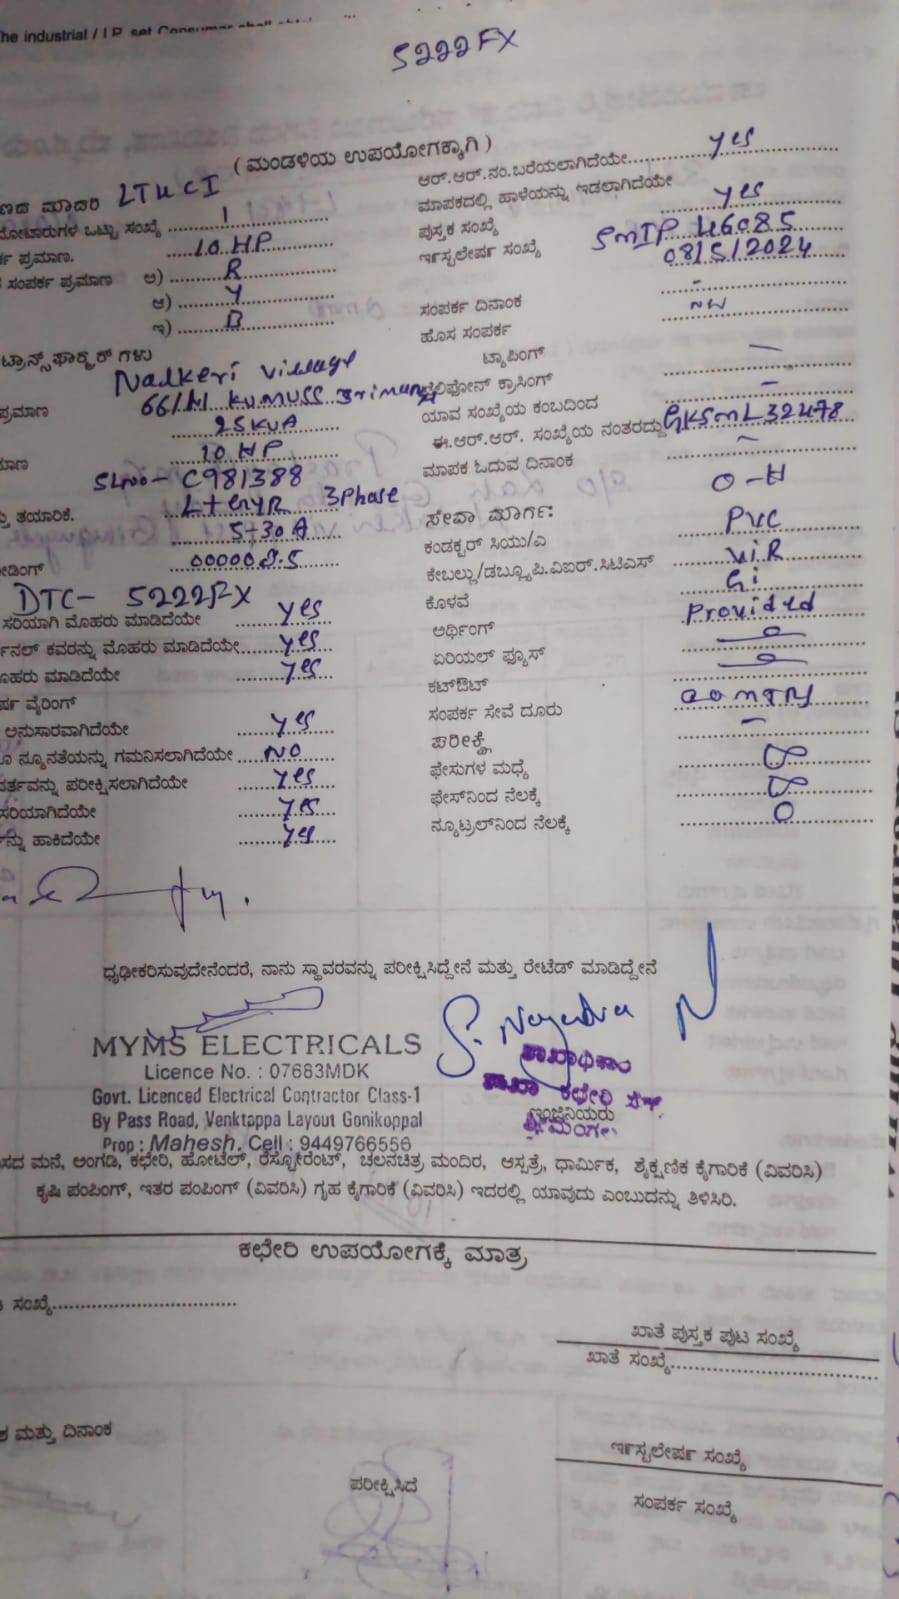 The industrial / I.P. set Consumer shall
5222FX
( ಮಂಡಳಿಯ ಉಪಯೋಗಕ್ಕಾಗಿ )
ಆರ್.ಆರ್.ನಂ.ಬರೆಯಲಾಗಿದೆಯೇ yes
ಣದ ಮಾದರಿ LTHCI
ಮಾಪಕದಲ್ಲಿ ಹಾಳೆಯನ್ನು ಇಡಲಾಗಿದೆಯೇ yes
ಮೋಟಾರುಗಳ ಒಟ್ಟು ಸಂಖ್ಯೆ 1
ಪುಸ್ತಕ ಸಂಖ್ಯೆ
ಪ್ರಮಾಣ. 10 HP
ಇನ್ಸ್ಟಲೇಷನ್ ಸಂಖ್ಯೆ SMIP 46085
ಸಂಪರ್ಕ ಪ್ರಮಾಣ ಅ) R
08/5/2024
ಆ) Y
ಸಂಪರ್ಕ ದಿನಾಂಕ -
ಇ) B
ಹೊಸ ಸಂಪರ್ಕ
ಟ್ರಾನ್ಸ್‌ಫಾರ್ಮರ್ ಗಳು
ಟ್ಯಾಪಿಂಗ್ —
Nalkeri village
ಟೆಲಿಫೋನ್ ಕ್ರಾಸಿಂಗ್
ಪ್ರಮಾಣ 66/11
ಯಾವ ಸಂಖ್ಯೆಯ ಕಂಬದಿಂದ –
25KVA
ಈ.ಆರ್.ಆರ್. ಸಂಖ್ಯೆಯ ನಂತರದ್ದು GKSML32478
ಮಾಣ 10 HP
ಮಾಪಕ ಓದುವ ದಿನಾಂಕ –
SLno- C981388
O-H
ತಯಾರಿಕೆ. L+ 3Phase
ಸೇವಾ ಮಾರ್ಗ:
5-30A
ಕಂಡಕ್ಟರ್ ಸಿಯು/ಎ PVC
ಡಿಂಗ್ 000008.5
ಕೇಬಲ್ಲು/ಡಬ್ಲ್ಯೂ.ಪಿ.ವಿಐರ್.ಸಿಟಿಎಸ್ VIR
DTC- 5222FX
ಕೊಳವೆ Gi
ಸರಿಯಾಗಿ ಮೊಹರು ಮಾಡಿದೆಯೇ yes
ಅರ್ಥಿಂಗ್ Provided
ರ್ಮಿನಲ್ ಕವರನ್ನು ಮೊಹರು ಮಾಡಿದೆಯೇ yes
ಏರಿಯಲ್ ಫ್ಯೂಸ್
ಮೊಹರು ಮಾಡಿದೆಯೇ yes
ಕಟ್‌ಔಟ್
ವೈರಿಂಗ್
ಸಂಪರ್ಕ ಸೇವೆ ದೂರು
ಅನುಸಾರವಾಗಿದೆಯೇ yes
ಪರೀಕ್ಷೆ –
ನ್ಯೂನತೆಯನ್ನು ಗಮನಿಸಲಾಗಿದೆಯೇ NO
ಫೇಸುಗಳ ಮಧ್ಯೆ ∞
ವರ್ತವನ್ನು ಪರೀಕ್ಷಿಸಲಾಗಿದೆಯೇ yes
ಫೇಸ್‌ನಿಂದ ನೆಲಕ್ಕೆ ∞
ಸರಿಯಾಗಿದೆಯೇ yes
ನ್ಯೂಟ್ರಲ್‌ನಿಂದ ನೆಲಕ್ಕೆ 0
ನ್ನು ಹಾಕಿದೆಯೇ yes
ಧೃಢೀಕರಿಸುವುದೇನೆಂದರೆ, ನಾನು ಸ್ಥಾವರವನ್ನು ಪರೀಕ್ಷಿಸಿದ್ದೇನೆ ಮತ್ತು ರೇಟೆಡ್ ಮಾಡಿದ್ದೇನೆ
S. Nagendra
MYMS ELECTRICALS
Licence No. : 07683MDK
ಶಾಖಾಧಿಕಾರಿ
Govt. Licenced Electrical Contractor Class-1
ಶಾಖಾ ಕಛೇರಿ
By Pass Road, Venktappa Layout Gonikoppal
ಇಂಜಿನಿಯರು
Prop : Mahesh. Cell : 9449766556
ಶ್ರೀಮಂಗಲ
ಸದ ಮನೆ, ಅಂಗಡಿ, ಕಛೇರಿ, ಹೋಟೆಲ್, ರೆಸ್ಟೋರೆಂಟ್, ಚಲನಚಿತ್ರ ಮಂದಿರ, ಆಸ್ಪತ್ರೆ, ಧಾರ್ಮಿಕ, ಶೈಕ್ಷಣಿಕ ಕೈಗಾರಿಕೆ (ವಿವರಿಸಿ)
ಕೃಷಿ ಪಂಪಿಂಗ್, ಇತರ ಪಂಪಿಂಗ್ (ವಿವರಿಸಿ) ಗೃಹ ಕೈಗಾರಿಕೆ (ವಿವರಿಸಿ) ಇದರಲ್ಲಿ ಯಾವುದು ಎಂಬುದನ್ನು ತಿಳಿಸಿರಿ.
ಕಛೇರಿ ಉಪಯೋಗಕ್ಕೆ ಮಾತ್ರ
ಸಂಖ್ಯೆ
ಖಾತೆ ಪುಸ್ತಕ ಪುಟ ಸಂಖ್ಯೆ
ಖಾತೆ ಸಂಖ್ಯೆ
ಮತ್ತು ದಿನಾಂಕ
ಇನ್ಸ್ಟಲೇಷನ್ ಸಂಖ್ಯೆ
ಪರೀಕ್ಷಿಸಿದೆ
ಸಂಪರ್ಕ ಸಂಖ್ಯೆ